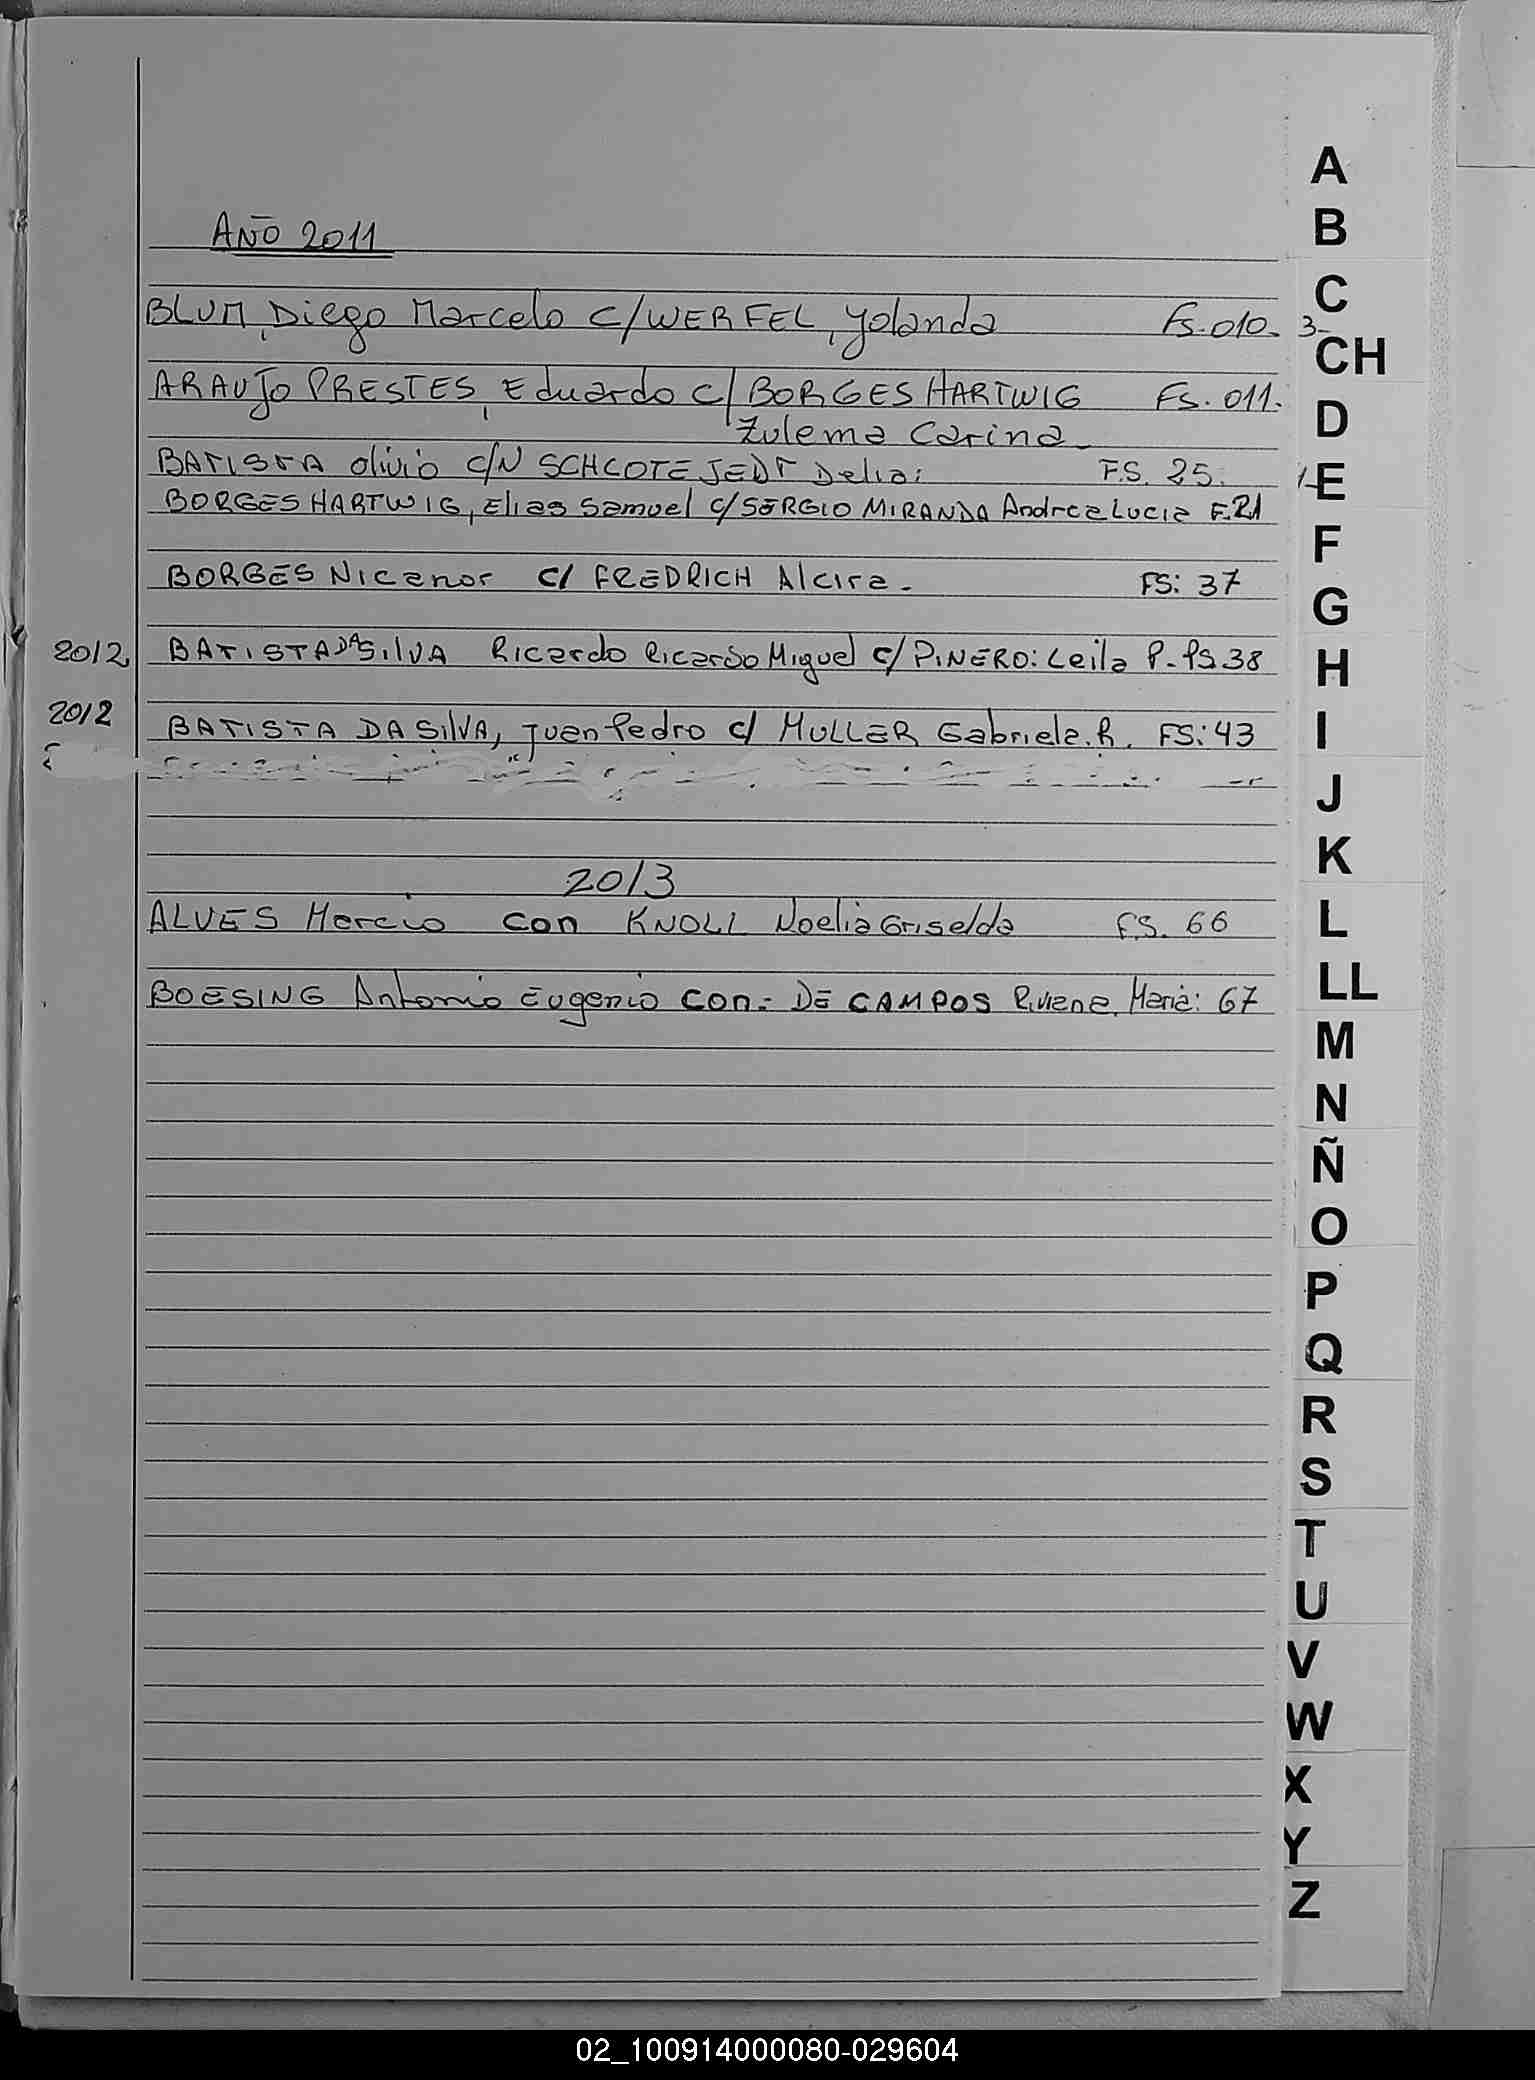 AÑO 2011
BLUM, Diego Marcelo C/WERFEL, Yolanda Fs. 010. 3-
ARAUJO PRESTES, Eduardo C/ BORGES HARTWIG Fs. 011.
Zulema Carina
BATISTA olivio C/N Delia: F.S. 25.
BORGES HARTWIG, Elias Samuel c/SERGIO MIRANDA Andrea Lucia F.21
BORGES Nicanor c/ FREDRICH Alcira. FS: 37
2012, BATISTA DA SILVA Ricardo Ricardo Miguel c/ PINERO: Leila P. fs 38
2012 BATISTA DA SILVA, Juan Pedro c/ MULLER Gabriela. R. FS: 43
2013
ALVES Marcio con KNOLL Noelia Griselda F.S. 66
BOESING Antonio Eugenio con: DE CAMPOS Maria: 67
A
B
C
CH
D
E
F
G
H
I
J
K
L
LL
M
N
Ñ
O
P
Q
R
S
T
U
V
W
X
Y
Z
02_100914000080-029604